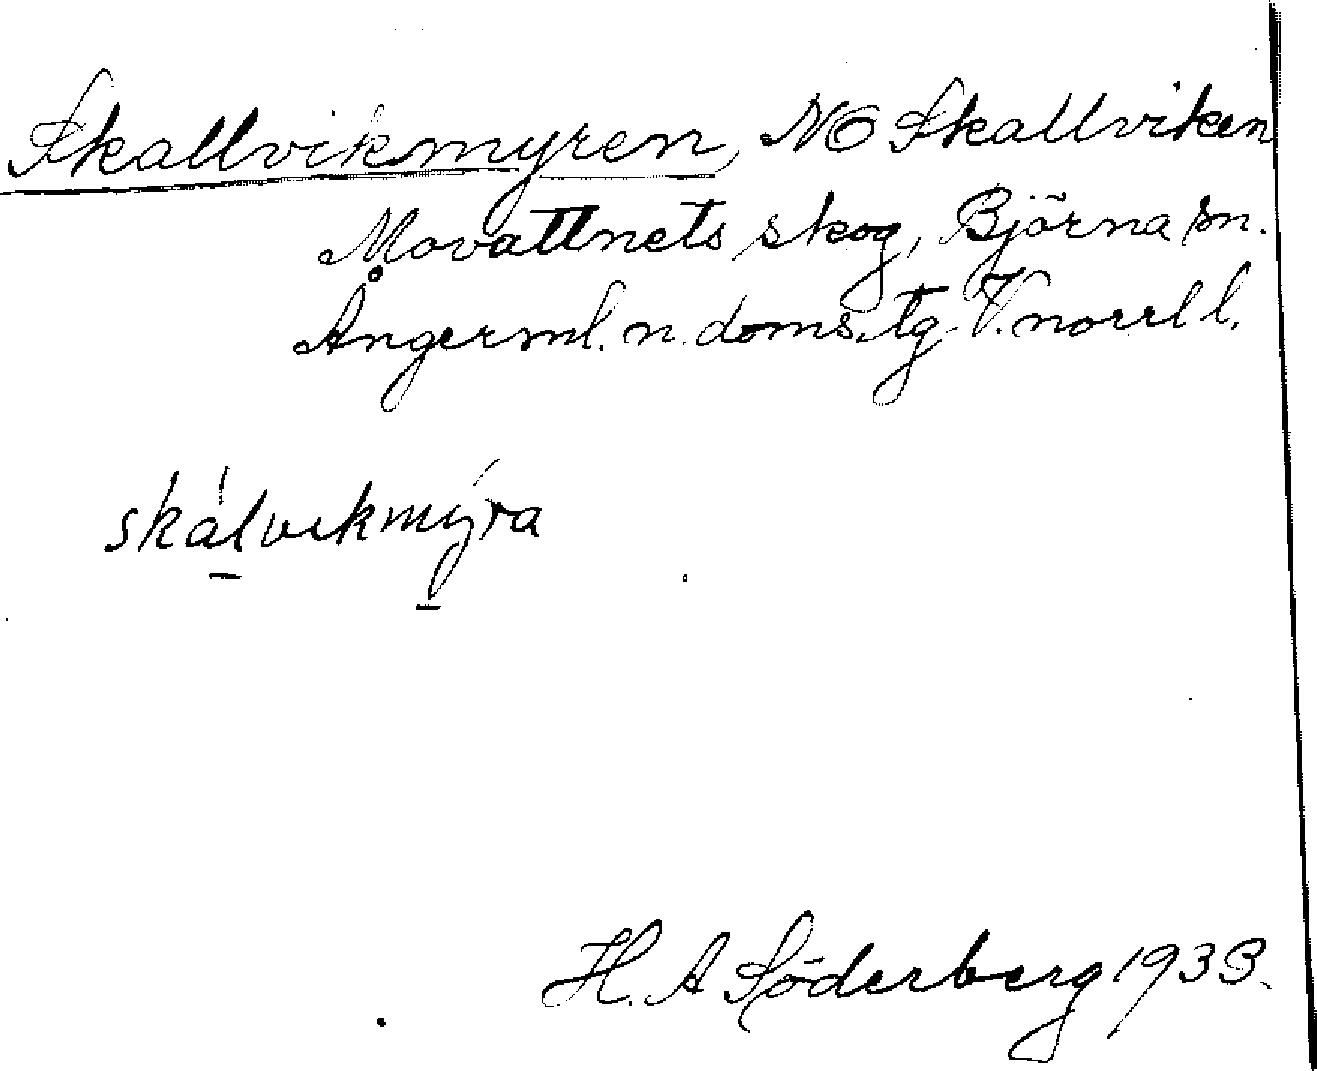 Skallvikmyren, NO Skallviken
Movattnets skog, Björna sn.
Ångerml. n. doms. tg V. norrl l.
skálvikmýra
H. A Söderberg 1933.